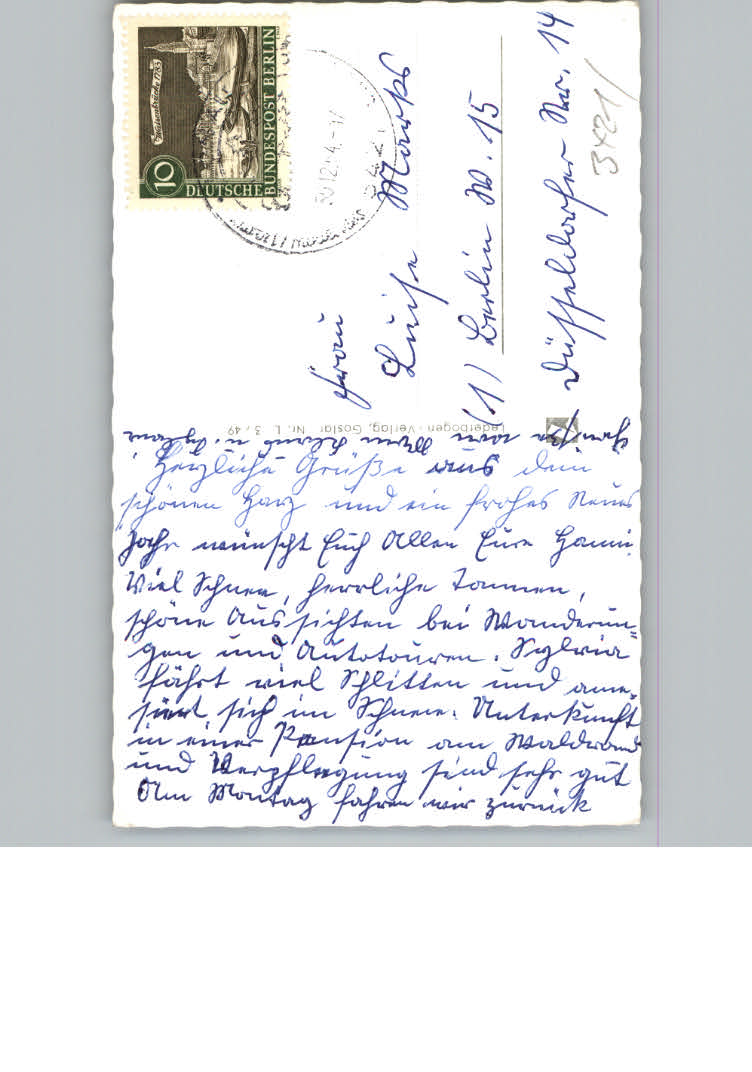 Waisenbrücke 1783
10
DEUTSCHE
BUNDESPOST BERLIN
30.12.64-17
3421
Frau
Luise Marks
(1) Berlin W. 15
Düsseldorfer Str. 14
3421/
Lederbogen-Verlag, Goslar Nr. L 3/49
Herzliche Grüße aus dem
schönen Harz und ein frohes Neues
Jahr wünscht Euch Allen Eure Hanni.
Viel Schnee, herrliche Tannen,
schöne Aussichten bei Wanderun-
gen und Autotouren. Sylvia
fährt viel Schlitten und amü-
siert sich im Schnee. Unterkunft
in einer Pension am Waldrand
und Verpflegung sind sehr gut
Am Montag fahren wir zurück